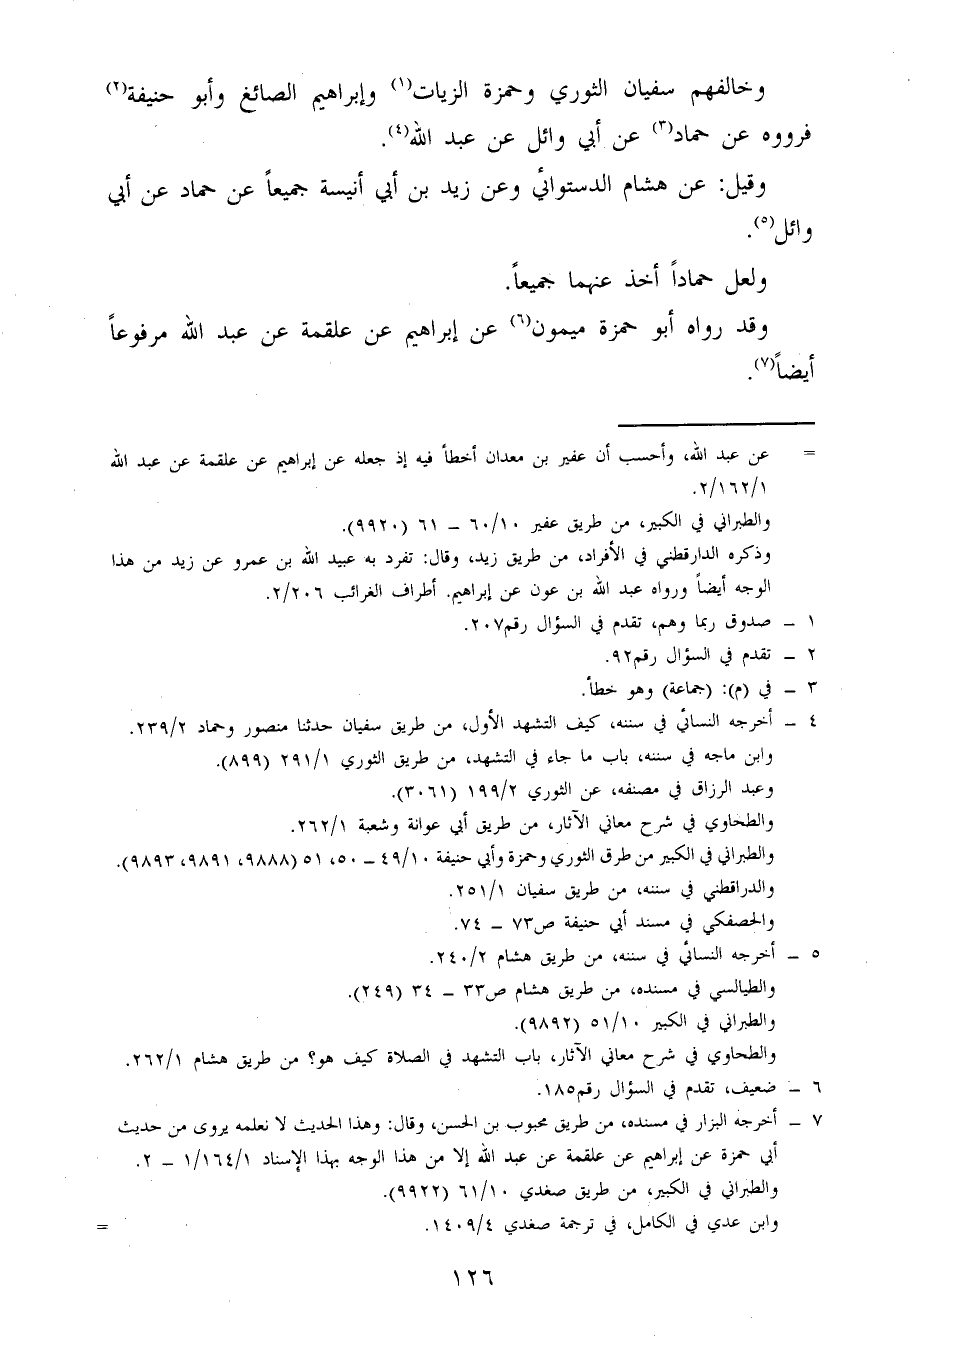 وخالفهم سفيان الثوري وحمزة الزيات(١) وإبراهيم الصائغ وأبو حنيفة(٢)
فرووه عن حماد(٣) عن أبي وائل عن عبد الله(٤).
وقيل: عن هشام الدستوائي وعن زيد بن أبي أنيسة جميعاً عن حماد عن أبي
وائل(٥).
ولعل حماداً أخذ عنهما جميعاً.
وقد رواه أبو حمزة ميمون(٦) عن إبراهيم عن علقمة عن عبد الله مرفوعاً
أيضاً(٧).
= عن عبد الله، وأحسب أن عفير بن معدان أخطأ فيه إذ جعله عن إبراهيم عن علقمة عن عبد الله
٢/١٦٢/١.
والطبراني في الكبير، من طريق عفير ٦٠/١٠ – ٦١ (٩٩٢٠).
وذكره الدارقطني في الأفراد، من طريق زيد، وقال: تفرد به عبيد الله بن عمرو عن زيد من هذا
الوجه أيضاً ورواه عبد الله بن عون عن إبراهيم. أطراف الغرائب ٢/٢٠٦.
١ – صدوق ربما وهم، تقدم في السؤال رقم٢٠٧.
٢ – تقدم في السؤال رقم٩٢.
٣ – في (م): (جماعة) وهو خطأ.
٤ – أخرجه النسائي في سننه، كيف التشهد الأول، من طريق سفيان حدثنا منصور وحماد ٢٣٩/٢.
وابن ماجه في سننه، باب ما جاء في التشهد، من طريق الثوري ٢٩١/١ (٨٩٩).
وعبد الرزاق في مصنفه، عن الثوري ١٩٩/٢ (٣٠٦١).
والطحاوي في شرح معاني الآثار، من طريق أبي عوانة وشعبة ٢٦٢/١.
والطبراني في الكبير من طرق الثوري وحمزة وأبي حنيفة ٤٩/١٠ – ٥٠، ٥١ (٩٨٨٨، ٩٨٩١، ٩٨٩٣).
والدراقطني في سننه، من طريق سفيان ٢٥١/١.
والحصفكي في مسند أبي حنيفة ص٧٣ – ٧٤.
٥ – أخرجه النسائي في سننه، من طريق هشام ٢٤٠/٢.
والطيالسي في مسنده، من طريق هشام ص٣٣ – ٣٤ (٢٤٩).
والطبراني في الكبير ٥١/١٠ (٩٨٩٢).
والطحاوي في شرح معاني الآثار، باب التشهد في الصلاة كيف هو؟ من طريق هشام ٢٦٢/١.
٦ – ضعيف، تقدم في السؤال رقم١٨٥.
٧ – أخرجه البزار في مسنده، من طريق محبوب بن الحسن، وقال: وهذا الحديث لا نعلمه يروى من حديث
أبي حمزة عن إبراهيم عن علقمة عن عبد الله إلا من هذا الوجه بهذا الإسناد ١/١٦٤/١ – ٢.
والطبراني في الكبير، من طريق صغدي ٦١/١٠ (٩٩٢٢).
وابن عدي في الكامل، في ترجمة صغدي ١٤٠٩/٤. =
١٢٦